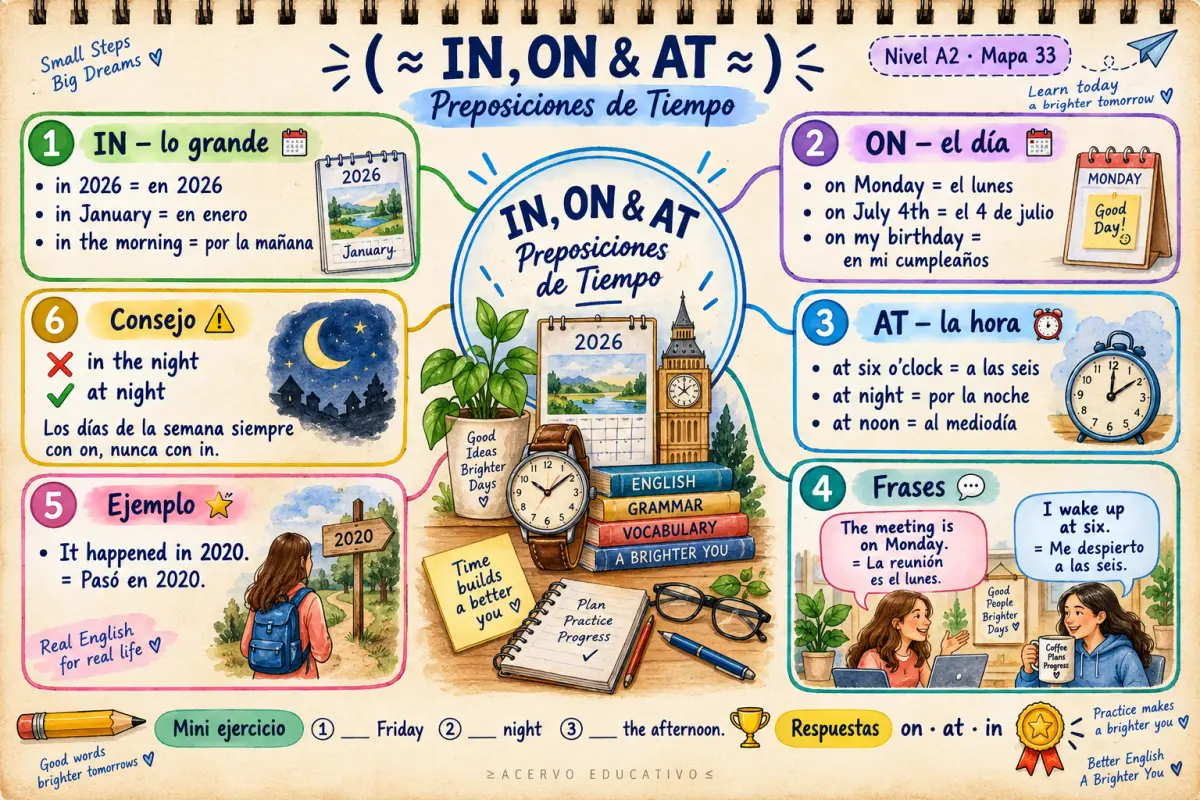 Small Steps
Big Dreams
(≈ IN, ON & AT ≈)
Preposiciones de Tiempo
Nivel A2 · Mapa 33
Learn today
a brighter tomorrow
1 IN – lo grande
• in 2026 = en 2026
• in January = en enero
• in the morning = por la mañana
2026
January
2 ON – el día
• on Monday = el lunes
• on July 4th = el 4 de julio
• on my birthday =
en mi cumpleaños
MONDAY
Good
Day!
IN, ON & AT
Preposiciones
de Tiempo
2026
Good
Ideas
Brighter
Days
ENGLISH
GRAMMAR
VOCABULARY
A BRIGHTER YOU
Time
builds
a better
you
Plan
Practice
Progress
3 AT – la hora
• at six o'clock = a las seis
• at night = por la noche
• at noon = al mediodía
12
1
2
3
4
5
6
7
8
9
10
11
4 Frases
The meeting is
on Monday.
= La reunión
es el lunes.
I wake up
at six.
= Me despierto
a las seis.
Good
People
Brighter
Days
Coffee
Plans
Progress
5 Ejemplo
• It happened in 2020.
= Pasó en 2020.
2020
Real English
for real life
6 Consejo
❌ in the night
✓ at night
Los días de la semana siempre
con on, nunca con in.
Mini ejercicio 1 ___ Friday 2 ___ night 3 ___ the afternoon.
Respuestas on · at · in
Good words
brighter tomorrows
Practice makes
a brighter you
Better English
A Brighter You
≥ ACERVO EDUCATIVO ≤